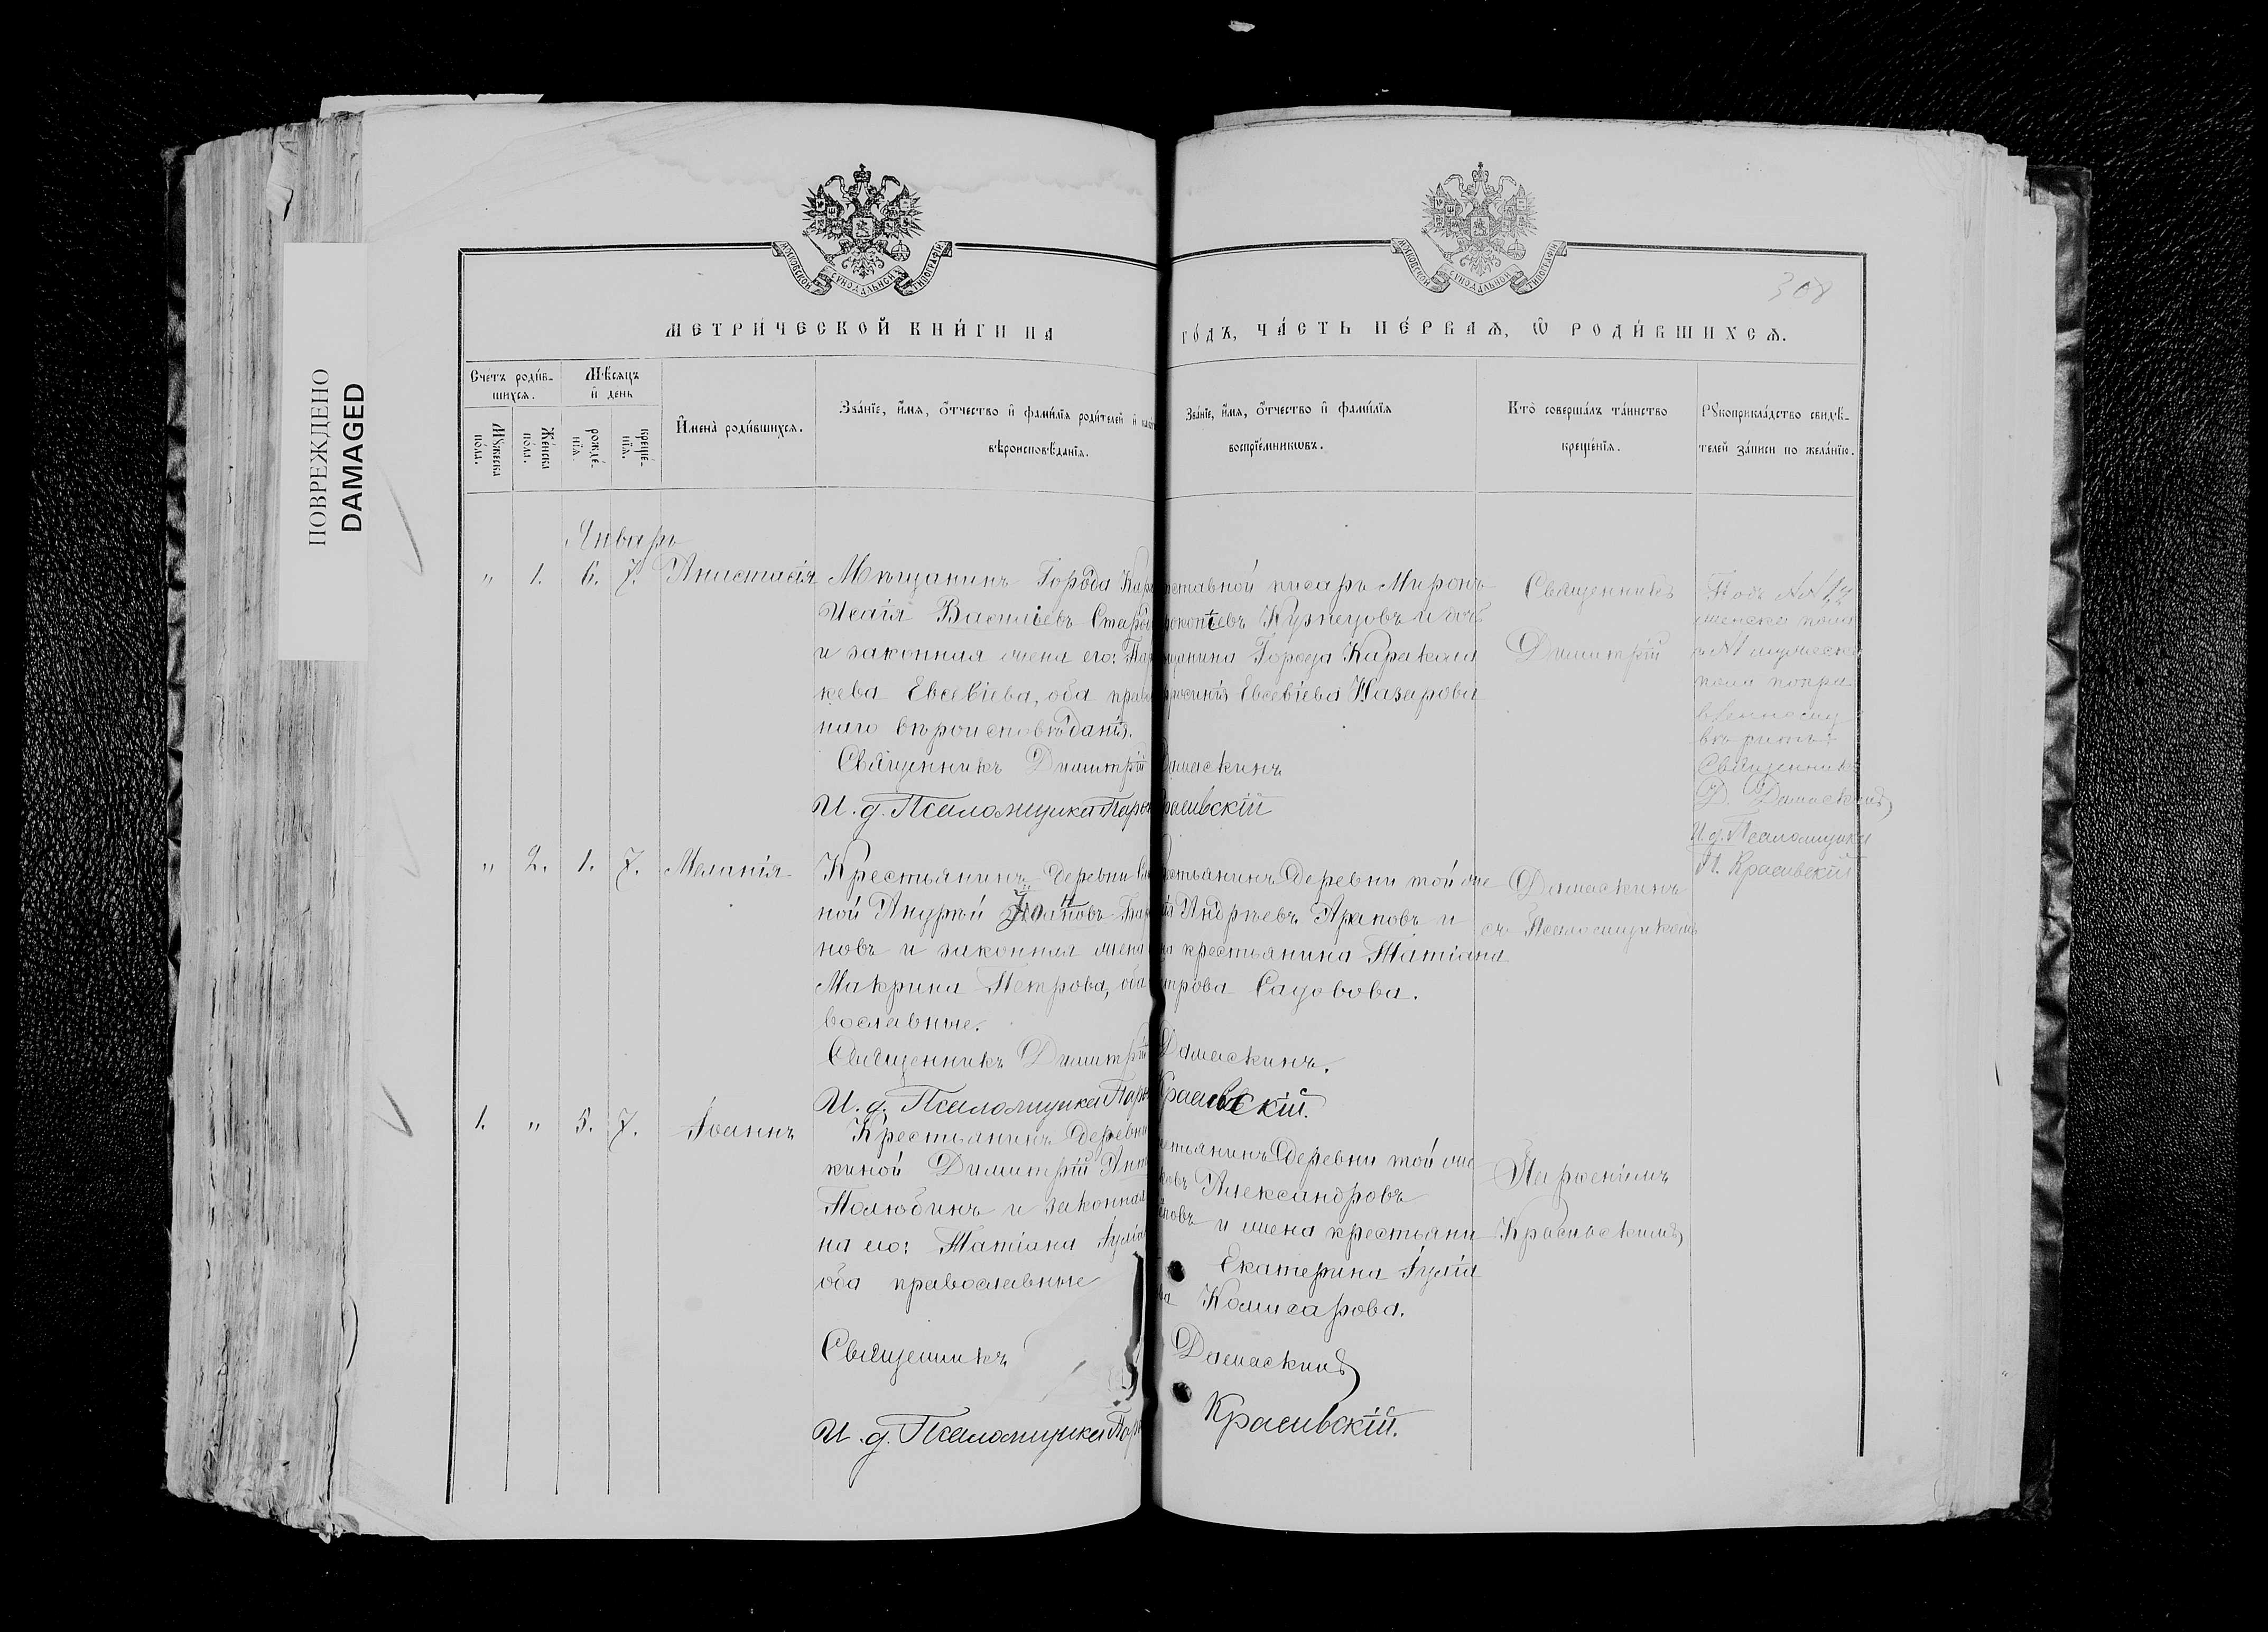 ПОВРЕЖДЕНО
DAMAGED
МОСКОВСКОЙ СѴНОДАЛЬНОЙ ТИПОГРАФІИ
МОСКОВСКОЙ СѴНОДАЛЬНОЙ ТИПОГРАФІИ
308
МЕТРИ́ЧЕСКОЙ КНИ́ГИ НА
ГО́ДЪ, ЧА́СТЬ ПЕ́РВАѦ, Ѡ҆ РОДИ́ВШИХСѦ.
Сче́тъ роди́в-
шихся.
Мѣ́сяцъ
и҆ день
Мꙋ́жеска по́ла.
Же́нска по́ла.
рожде́нїѧ.
креще́нїѧ.
И҆мена̀ роди́вшихся.
Зва́нїе, и҆́мя, ѻ҆́тчество и҆ фами́лїя роди́телей и҆
вѣроисповѣ́данїя.
Зва́нїе, и҆́мя, ѻ҆́тчество и҆ фами́лїя
воспрїе́мникѡвъ.
Кто̀ соверша́лъ та́инство
креще́нїя.
Рꙋкоприкла́дство свидѣ́-
телей за́писи по жела́нїю.
Январь
" 1. 6. 7. Анастасія
Мѣщанинъ Города Кара
Исаія Васильевъ Старо
и законная жена его: Пар
кева Евсевіева, оба право
наго вѣроисповѣданія.
Священникъ Димитрій Дамаскинъ
И. д. Псаломщика Парѳ Красивскій
ставной писарь Миронъ
Кузнецовъ и дочь
щанина Города Каракола
Евсевіева Назарова
Священникъ
Димитрій
Подъ №№ 1, 2
женска пола
и № 1 мужеска
пола попра
вленному
вѣримъ:
Священникъ
Д. Дамаскинъ
И. д. Псаломщика
П. Красивскій
" 2. 1. 7. Меланія
Крестьянинъ деревни
ной Андрей Іоанновъ
новъ и законная жена
Макрина Петрова, оба
вославные.
Священникъ Димитрій Дамаскинъ.
И. д. Псаломщика Парѳ Красивскій.
стьянинъ деревни той же
Андреевъ Араповъ и
крестьянина Татіана
трова Садовова.
Дамаскинъ
съ Псаломщикомъ
1. " 5. 7. Іоаннъ
Крестьянинъ деревни
киной Димитрій Ант
Полюбинъ и законная
на его: Татіана Іуліа
оба православные
Священникъ Дамаскинъ
И. д. Псаломщика Парѳ Красивскій.
стьянинъ деревни той же
Александровъ
и жена крестьяни
Екатерина Іуліа
Комисарова.
Парѳеніемъ
Красивскимъ